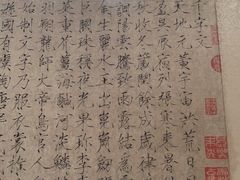 千字文
天地元黃宇宙洪荒日
盈昃辰宿列張寒來暑
秋收冬藏閏餘成歲律
陽雲騰致雨露結為
金生麗水玉出崑崗劍
巨闕珠稱夜光果珍李
菜重芥薑海鹹河淡鱗
羽翔龍師火帝鳥官人
始制文字乃服衣裳推
國有虞